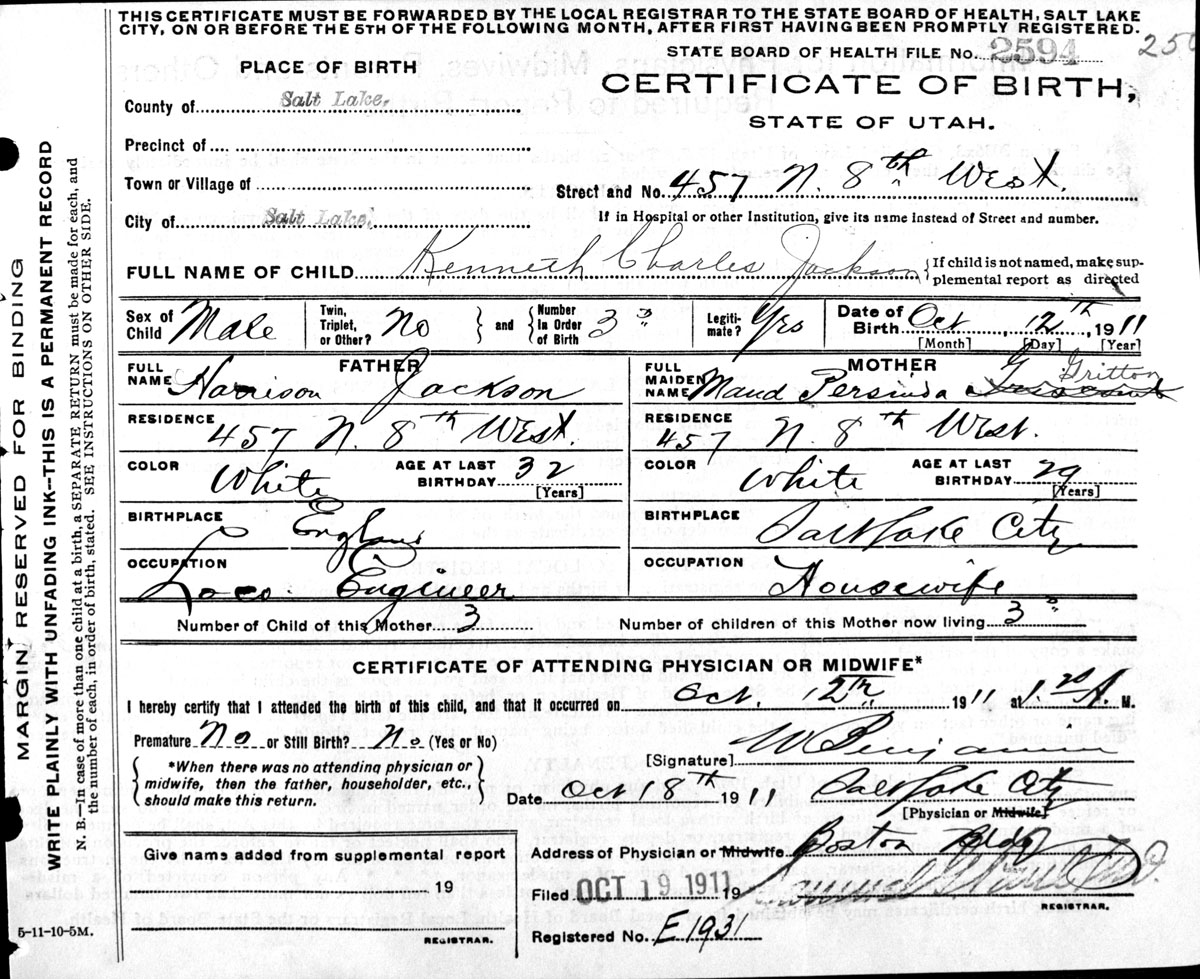 THIS CERTIFICATE MUST BE FORWARDED BY THE LOCAL REGISTRAR TO THE STATE BOARD OF HEALTH, SALT LAKE
CITY, ON OR BEFORE THE 5TH OF THE FOLLOWING MONTH, AFTER FIRST HAVING BEEN PROMPTLY REGISTERED.
STATE BOARD OF HEALTH FILE No. 2594
PLACE OF BIRTH
CERTIFICATE OF BIRTH,
STATE OF UTAH.
County of Salt Lake.
Precinct of
Town or Village of
Street and No. 457 N. 8th West.
City of Salt Lake.
If in Hospital or other Institution, give its name instead of Street and number.
FULL NAME OF CHILD Kenneth Charles Jackson { If child is not named, make sup-
plemental report as directed
Sex of Child Male
Twin, Triplet, or Other? No } and { Number in Order of Birth 3
Legiti-mate? Yes
Date of Birth Oct, 12th, 1911
[Month] [Day] [Year]
FATHER
FULL NAME Harrison Jackson
RESIDENCE 457 N. 8th West.
COLOR White AGE AT LAST BIRTHDAY 32 [Years]
BIRTHPLACE England
OCCUPATION Loco. Engineer
MOTHER
FULL MAIDEN NAME Maud Persinda Gritton
RESIDENCE 457 N. 8th West.
COLOR White AGE AT LAST BIRTHDAY 29 [Years]
BIRTHPLACE Salt Lake City
OCCUPATION Housewife
Number of Child of this Mother 3
Number of children of this Mother now living 3
CERTIFICATE OF ATTENDING PHYSICIAN OR MIDWIFE*
I hereby certify that I attended the birth of this child, and that it occurred on Oct. 12th 1911 at 1.20 A. M.
Premature No or Still Birth? No (Yes or No)
{ *When there was no attending physician or
midwife, then the father, householder, etc.,
should make this return. }
[Signature] W Benjamin
Date Oct 18th 1911 Salt Lake City
[Physician or Midwife]
Give name added from supplemental report
19
REGISTRAR.
Address of Physician or Midwife Boston Bldg
Filed OCT 19 1911 19
REGISTRAR.
Registered No. E1931
5-11-10-5M.
MARGIN RESERVED FOR BINDING
WRITE PLAINLY WITH UNFADING INK—THIS IS A PERMANENT RECORD
N. B.—In case of more than one child at a birth, a SEPARATE RETURN must be made for each, and
the number of each, in order of birth, stated. SEE INSTRUCTIONS ON OTHER SIDE.